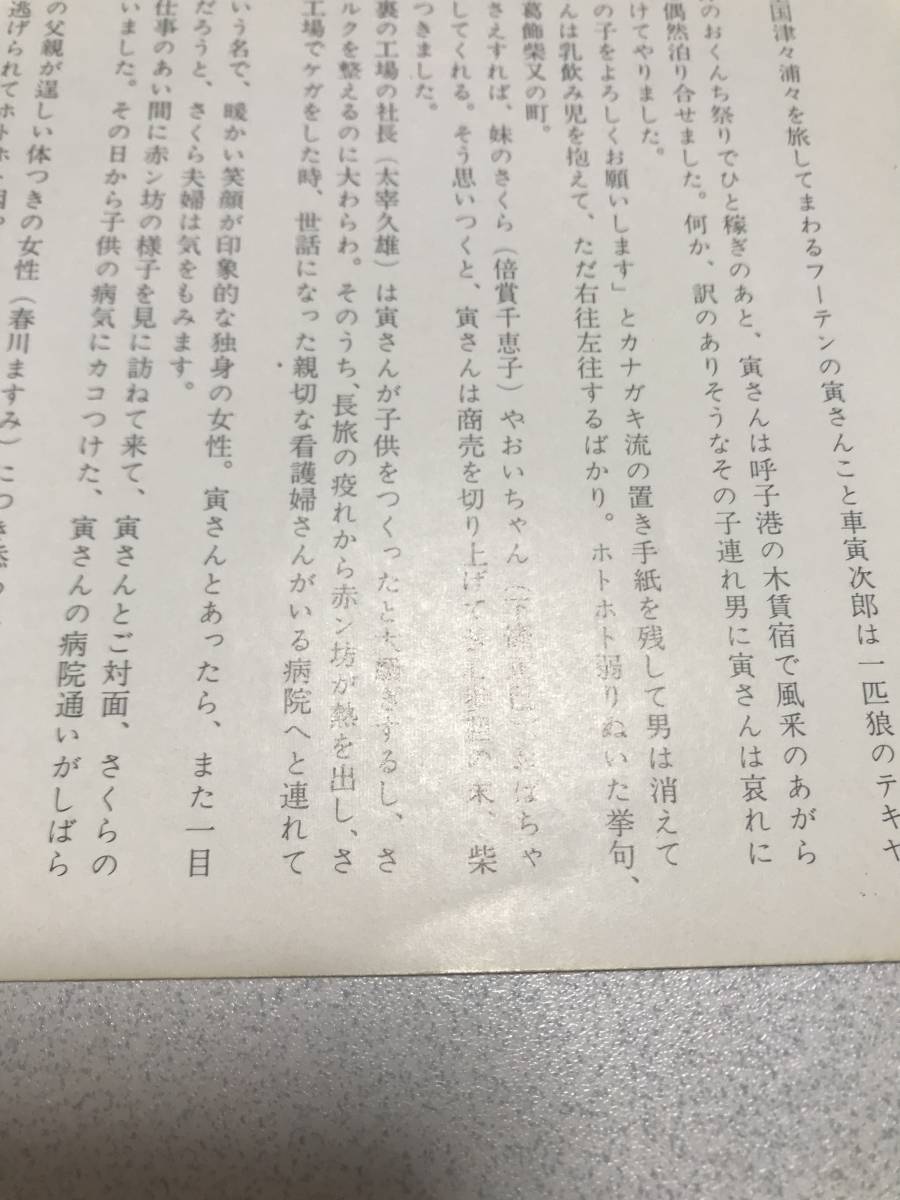 国津々浦々を旅してまわるフーテンの寅さんこと車寅次郎は一匹狼のテキヤ
のおくんち祭りでひと稼ぎのあと、寅さんは呼子港の木賃宿で風采のあがら
偶然泊り合せました。何か、訳のありそうなその子連れ男に寅さんは哀れに
けてやりました。
の子をよろしくお願いします」とカナガキ流の置き手紙を残して男は消えて
んは乳飲み児を抱えて、ただ右往左往するばかり。ホトホト弱りぬいた挙句、
葛飾柴又の町。
さえすれば、妹のさくら（倍賞千恵子）やおいちゃん（下條正巳）おばちゃ
してくれる。そう思いつくと、寅さんは商売を切り上げて の末、柴
つきました。
裏の工場の社長（太宰久雄）は寅さんが子供をつくったと大騒ぎするし、さ
ルクを整えるのに大わらわ。そのうち、長旅の疲れから赤ン坊が熱を出し、さ
工場でケガをした時、世話になった親切な看護婦さんがいる病院へと連れて
いう名で、暖かい笑顔が印象的な独身の女性。寅さんとあったら、また一目
だろうと、さくら夫婦は気をもみます。
仕事のあい間に赤ン坊の様子を見に訪ねて来て、寅さんとご対面、さくらの
いました。その日から子供の病気にカコつけた、寅さんの病院通いがしばら
の父親が逞しい体つきの女性（春川ますみ）につき添
逃げられてホトホト困